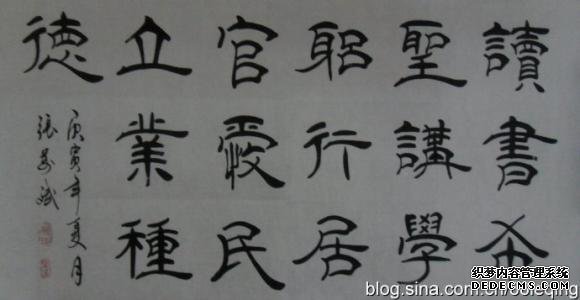 讀書希
聖講學
躳行居
官愛民
立業種
德
庚寅年夏月
張
blog.sina.com.cn
织梦内容管理系统
DEDECMS.COM